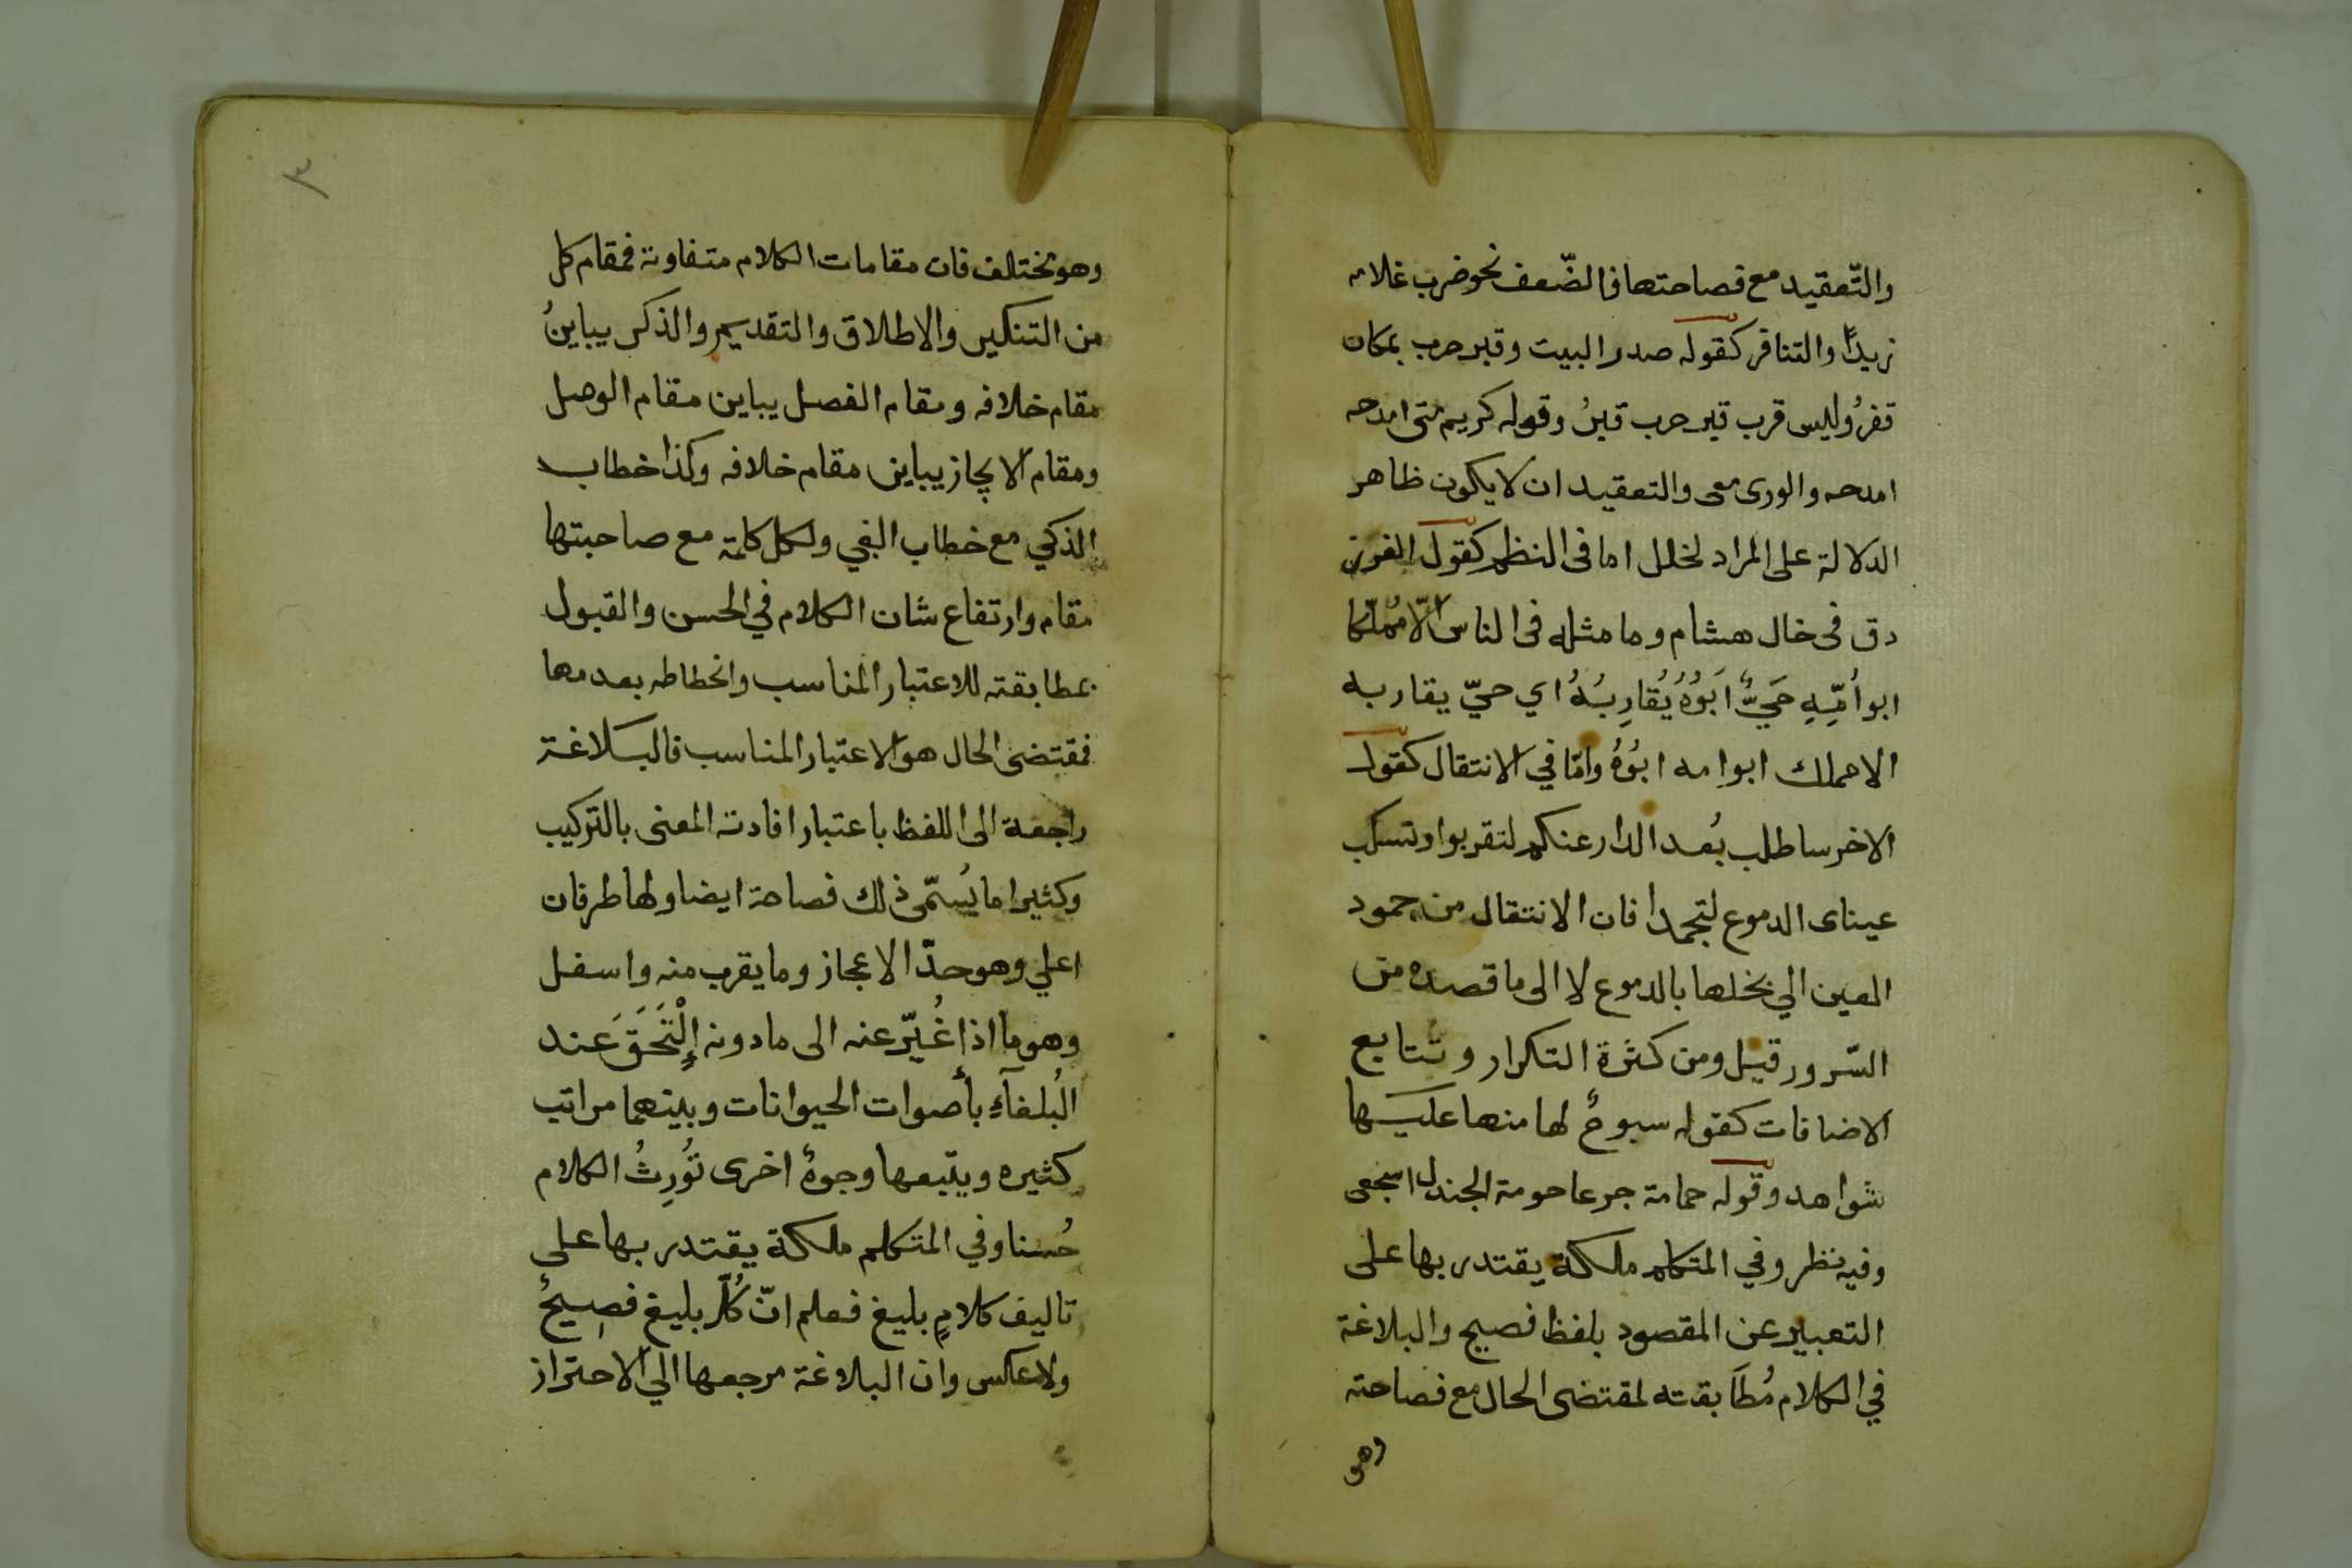 والتّعقيد مع فصاحتها فالضّعف نحو ضرب غلامه
زيدًا والتنافر كقوله صدر البيت وقبر حرب بمكان
قفرُ وليس قرب قبر حرب قبرُ وقوله كريم متى امدحه
امدحه والورى معى والتعقيد ان لا يكون ظاهر
الدلالة على المراد لخلل اما فى النظم كقول الفرز
دق فى خال هشام وما مثله فى الناس الّا مُملّكا
ابو اُمّهِ حَيٌّ اَبُوُهُ يُقارِبُهُ اي حيّ يقاربه
الا مملك ابو امه ابُوُهُ وامّا في الانتقال كقول
الاخر ساطلب بُعد الدار عنكم لتقربوا وتسكب
عيناى الدموع لتجمدا فان الانتقال من جمود
العين الي بخلها بالدموع لا الى ما قصده من
السّرور قيل ومن كثرة التكرار وتتابع
الاضافات كقوله سبوحٌ لها منها عليها
شواهد وقوله حمامة جرعا حومة الجندل اسجعى
وفيه نظر وفي المتكلم ملكة يقتدر بها على
التعبير عن المقصود بلفظ فصيح والبلاغة
في الكلام مُطَابقته لمقتضى الحال مع فصاحته
وهو
٣
وهو مختلف فان مقامات الكلام متفاوتة فمقام كل
من التنكير والاطلاق والتقديم والذكر يباينُ
مقام خلافه ومقام الفصل يباين مقام الوصل
ومقام الايجاز يباين مقام خلافه وكذا خطاب
الذكي مع خطاب الغبي ولكل كلمة مع صاحبتها
مقام وارتفاع شان الكلام في الحسن والقبول
بمطابقته للاعتبار المناسب وانحطاطه بعدمها
فمقتضى الحال هو الاعتبار المناسب فالبلاغة
راجعة الى اللفظ باعتبار افادته المعنى بالتركيب
وكثيرا ما يُسمّى ذلك فصاحة ايضا ولها طرفان
اعلي وهو حدّ الاعجاز وما يقرب منه واسفل
وهو ما اذا غُيّر عنه الى ما دونه اِلْتَحَقَ عند
البُلغآءِ بأصوات الحيوانات وبينهما مراتب
كثيره ويتبعها وجوهٌ اخرى تُورِثُ الكلام
حُسنا وفي المتكلم ملكة يقتدر بها على
تاليف كلامٍ بليغ فعلم انّ كُلّ بليغ فصِيحٌ
ولا عكس وان البلاغة مرجعها الي الاحتراز